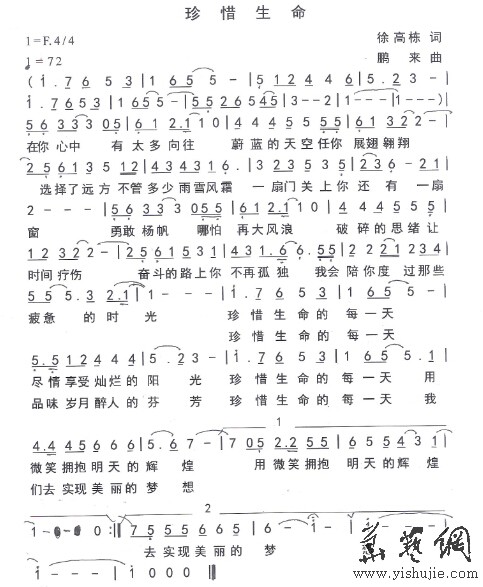 珍惜生命
1=F.4/4
徐高栋 词
♩=72
鹏来 曲
(i. 7 6 5 3 | 1 6 5 5 - | 5 1 2 4 4 6 | 5 - - - |
i. 7 6 5 3 | 1 6 5 5 - | 5 5 2 6 5 4 5 | 1 - - - | 1 - - - )
5 6 3 3 3 0 5 | 6 1 2.1 1 0 | 4 4 4 5 5 5 5 | 6 1 3 2 2 - |
在你心中 有太多向往 蔚蓝的天空任你展翅翱翔
2 5 6 1 3 5 1 2 | 4 3 4 3 1 6 | 5 5 5 3 5.2 | 2 3 6 - 2 1 |
选择了远方不管多少雨雪风霜 一扇门关上你还有一扇
2 - - - | 5 6 3 3 3 0 5 5 | 6 1 2.1 1 0 | 4 4 4 5 5 5 5 |
窗 勇敢杨帆 哪怕再大风浪 破碎的思绪让
1 3 2 2 - | 2 5 6 1 5 3 1 | 4 3 1 6.6. 5 5 | 2 2 1 2 3 4 |
时间疗伤 奋斗的路上你不再孤独 我会陪你度过那些
5 5 5. 3 2.1 | 1 - - - | i. 7 6 5 3 | 1 6 5 5 - |
疲惫的时光 珍惜生命的每一天
珍惜生命的每一天
5.5 1 2 4 4 4 | 5 . 2 3 - | i. 7 6 5 3 | 1 6 5 5 . 1 |
尽情享受灿烂的阳光 珍惜生命的每一天 用
品味岁月醉人的芬芳 珍惜生命的每一天 我
1
4.4 4 5 6 6 6 | 5 . 6 7 - | 7 0 5 2.2 5 5 | 6 5 5 4 3 1 |
微笑拥抱明天的辉煌 用微笑拥抱明天的辉煌
们去实现美丽的梦想
2
1 - - 0 :|| 7 5 5 5 6 6 5 | 6 - - i | i - - - |
去实现美丽的梦
i - - - | i 0 0 0 ||
華藝網
www.yishujie.com